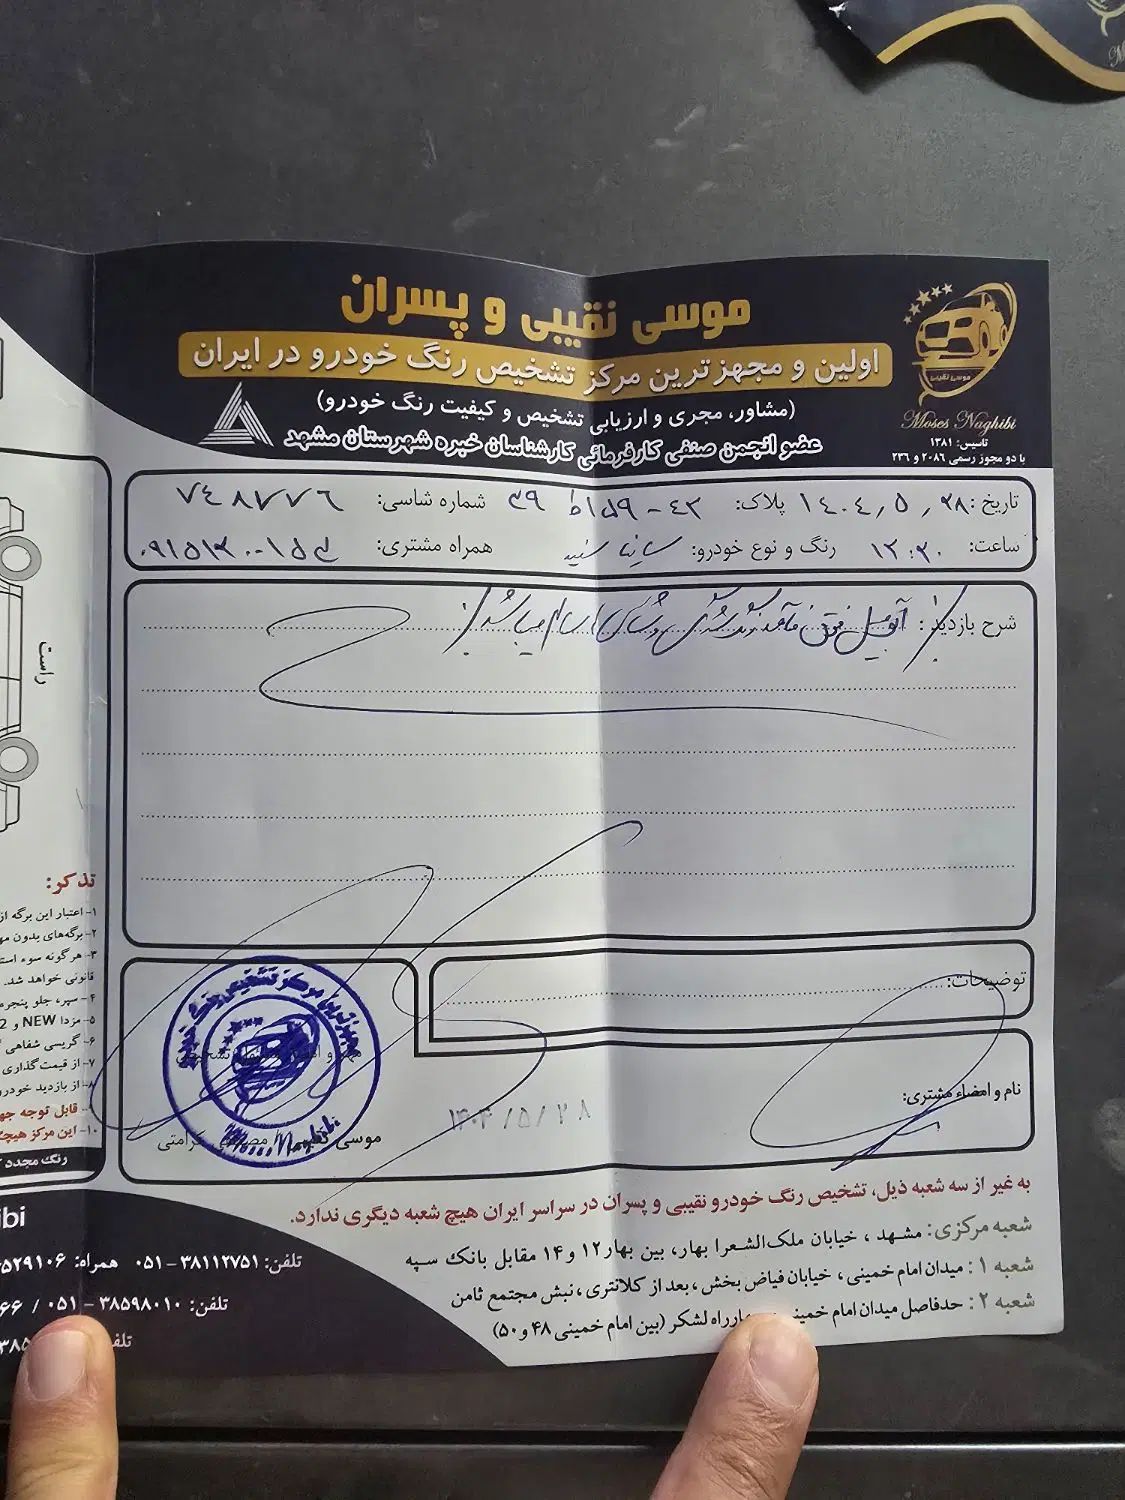 موسی نقیبی و پسران
اولین و مجهزترین مرکز تشخیص رنگ خودرو در ایران
(مشاور، مجری و ارزیابی تشخیص و کیفیت رنگ خودرو)
عضو انجمن صنفی کارفرمائی کارشناسان خبره شهرستان مشهد
موسی نقیبی
Moses Naghibi
تاسیس: ۱۳۸۱
با دو مجوز رسمی ۲۰۸۶ و ۲۳۶
تاریخ: ۱۴۰۴٫۵٫۲۸ پلاک: شماره شاسی: ۷۴۸۷۷۶
ساعت: ۱۲:۲۰ رنگ و نوع خودرو: سایپا سفید همراه مشتری:
شرح بازدید: اتومبیل فوق فاقد رنگ
توضیحات:
نام و امضاء مشتری:
۱۴۰۴/۵/۲۸
موسی نقیبی / مصطفی کرامتی
راست
تذکر:
۱- اعتبار این برگه از
۲- برگه‌های بدون مه
۳- هرگونه سوء است
قانونی خواهد شد.
۴- سپر، جلو پنجره
۵- مزدا NEW و 2
۶- گریسی شفاهی
۷- از قیمت‌گذاری
۸- از بازدید خودرو
قابل توجه
۱۰- این مرکز هیچ
رنگ مجدد
به غیر از سه شعبه ذیل، تشخیص رنگ خودرو نقیبی و پسران در سراسر ایران هیچ شعبه دیگری ندارد.
شعبه مرکزی: مشهد ، خیابان ملک‌الشعرا بهار، بین بهار۱۲ و ۱۴ مقابل بانک سپه
شعبه ۱ : میدان امام خمینی ، خیابان فیاض بخش ، بعد از کلانتری ، نبش مجتمع ثامن
شعبه ۲ : حدفاصل میدان امام خمینی چهارراه لشکر (بین امام خمینی ۴۸ و ۵۰)
ibi
تلفن: ۳۸۱۱۲۷۵۱-۰۵۱ همراه: ۵۲۹۱۰۶
تلفن: ۳۸۵۹۸۰۱۰ - ۰۵۱ / ۶۶
تلف ۳۸۵